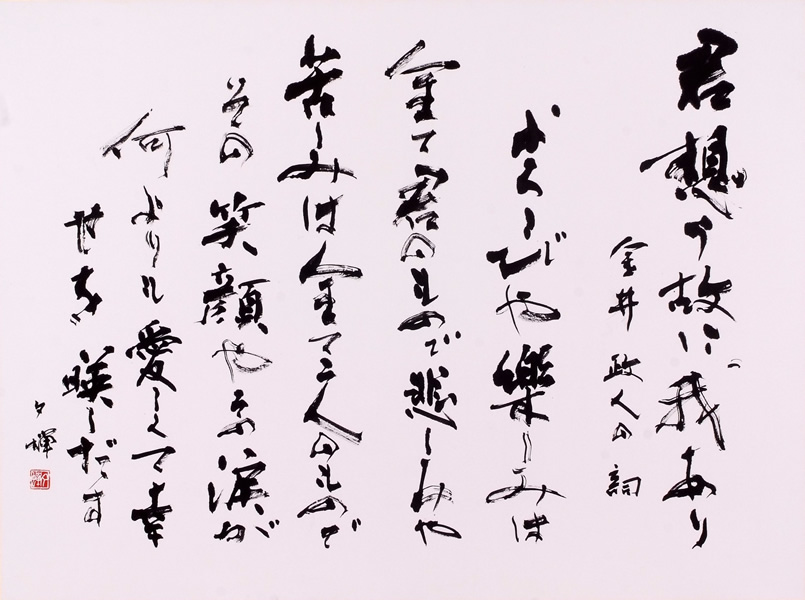 君想う故に我あり
金井 政人の詞
よろこびや樂しみは
全て君のもので悲しみや
苦しみは全て二人のもので
その笑顔やその涙が
何よりも愛しくて幸
せを暎しだす
夕輝